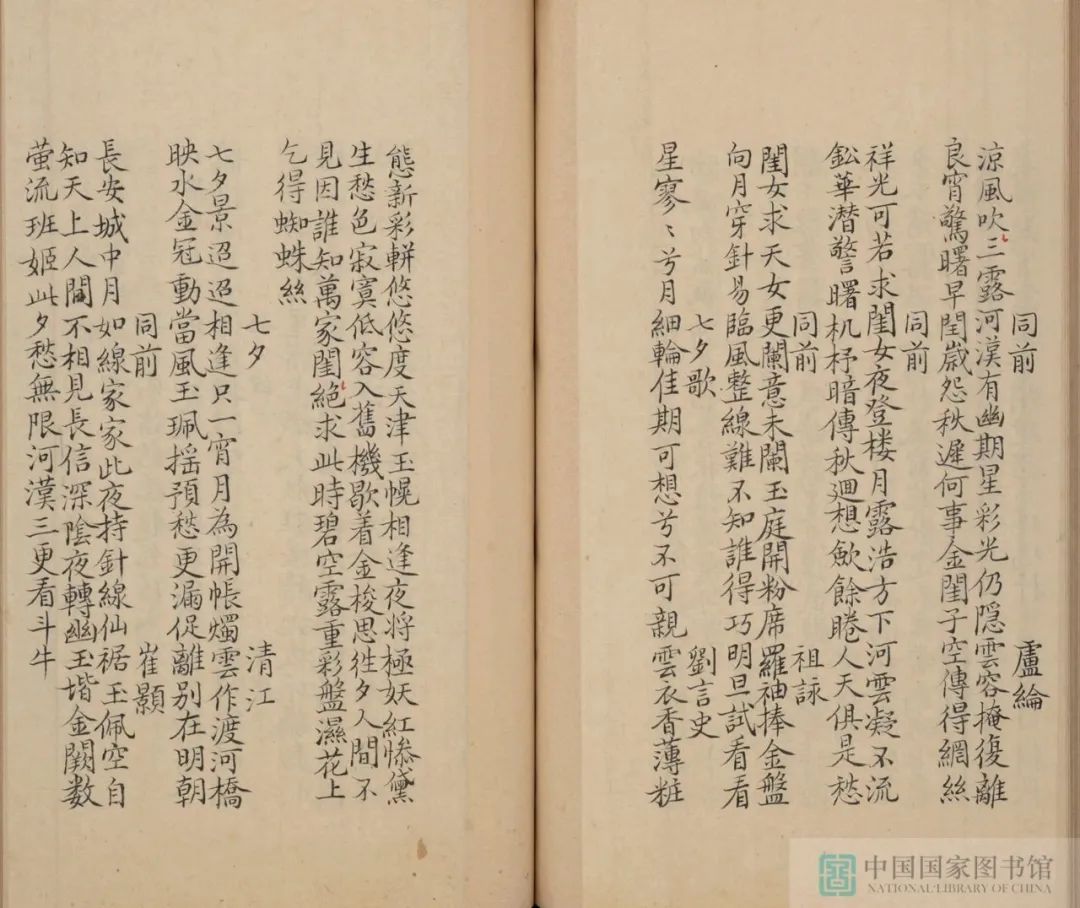 同前 盧綸
涼風吹三露河漢有幽期星彩光仍隠雲容掩復離
良宵驚曙早閏歳怨秋遲何事金閨子空傳得網絲
同前
祥光可若求閨女夜登楼月露浩方下河雲凝不流
鈆華潜警曙机杼暗傳秋迴想歛餘睠人天俱是愁
同前 祖詠
閨女求天女更闌意未闌玉庭開粉席羅袖捧金盤
向月穿針易臨風整線難不知誰得巧明旦試看看
七夕歌 劉言史
星寥〻兮月細輪佳期可想兮不可親雲衣香薄粧
態新彩軿悠悠度天津玉幌相逢夜将極妖紅惨黛
生愁色寂寞低容入舊機歇着金梭思徃夕人間不
見因誰知萬家閨絶求此時碧空露重彩盤濕花上
乞得蜘蛛絲
七夕 清江
七夕景迢迢相逢只一宵月為開帳燭雲作渡河橋
映水金冠動當風玉珮揺預愁更漏促離别在明朝
同前 崔顥
長安城中月如線家家此夜持針線仙裾玉佩空自
知天上人間不相見長信深陰夜轉幽玉堦金闕数
萤流班姬此夕愁無限河漢三更看斗牛
中国国家图书馆
NATIONAL LIBRARY OF CHINA